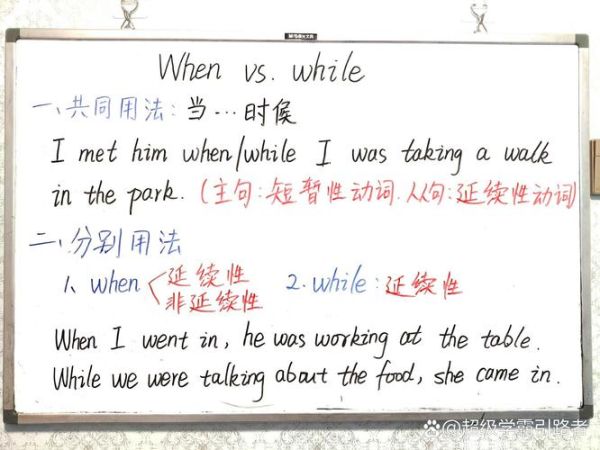 When vs. while
一、共同用法：当…时候
I met him when/while I was taking a walk
in the park.（主句：短暂性动词.从句：延续性动词）
二、分别用法
1、when 延续性 非延续性 2.while：延续性
When I went in, he was working at the table.
While we were talking about the food, she came in.
@超级学霸引路者